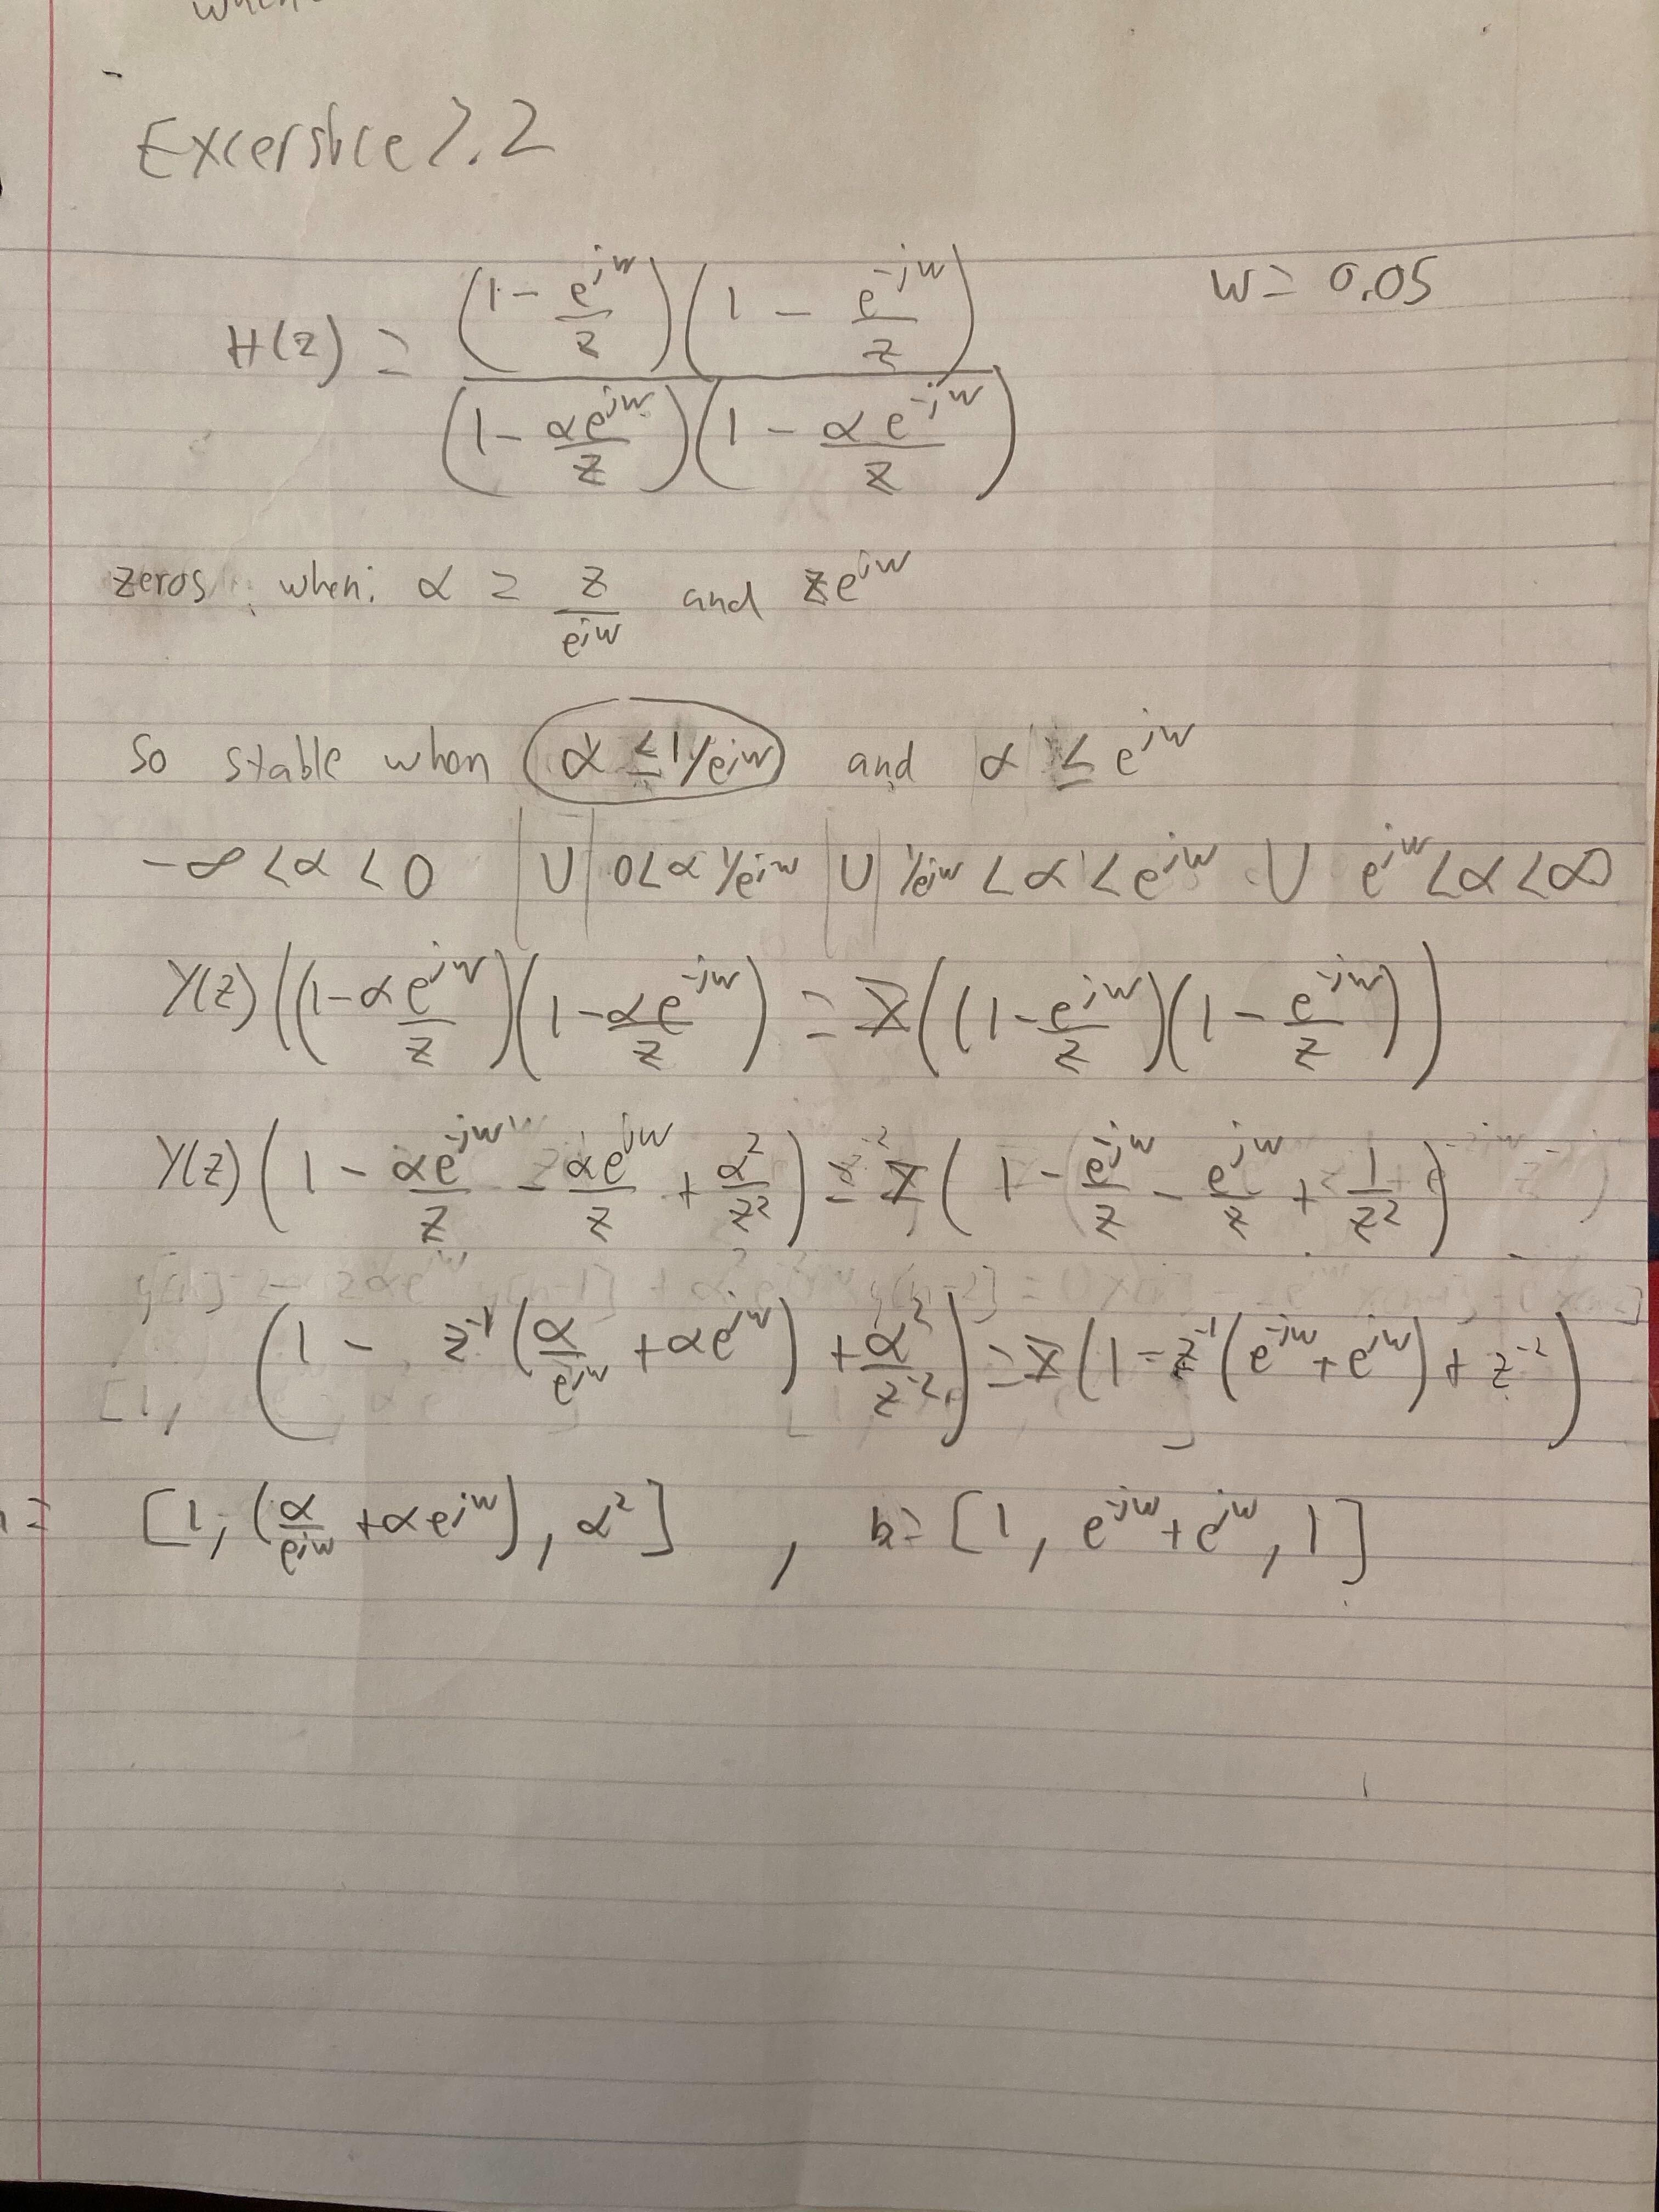 Excersice 7.2
H(z) = ((1 - e^{jw}/z)(1 - e^{-jw}/z)) / ((1 - αe^{jw}/z)(1 - αe^{-jw}/z))    w = 0.05
zeros when: α = z/e^{jw} and ze^{jw}
So stable when α ≤ 1/e^{jw} and α ≤ e^{jw}
-∞ < α < 0 | U | 0 < α 1/e^{jw} | U | 1/e^{jw} < α < e^{jw} U e^{jw} < α < ∞
Y(z)((1 - αe^{jw}/z)(1 - αe^{-jw}/z) = X((1 - e^{jw}/z)(1 - e^{-jw}/z))
Y(z)(1 - αe^{-jw}/z - αe^{jw}/z + α²/z²) = X(1 - e^{-jw}/z - e^{jw}/z + 1/z²)
(1 - z^{-1}(α/e^{jw} + αe^{jw}) + α²/z^{-2}) = X(1 - z^{-1}(e^{-jw} + e^{jw}) + z^{-2})
= [1, (α/e^{jw} + αe^{jw}), α²] , b = [1, e^{-jw} + e^{jw}, 1]